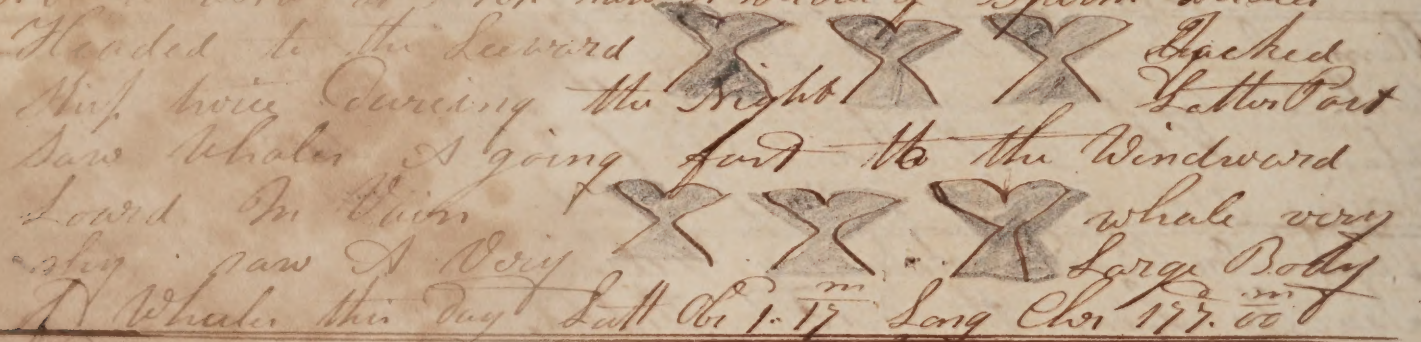 Headed to the Leeward Tacked
Ship twice Dureing the Night Latter Part
Saw Whales A going fast to the Windward
Lowrd In Vain whale very
shy saw A Very Large Body
of Whales this Day Latt Obs 1.. 17 m Long Chr 177. 00 m